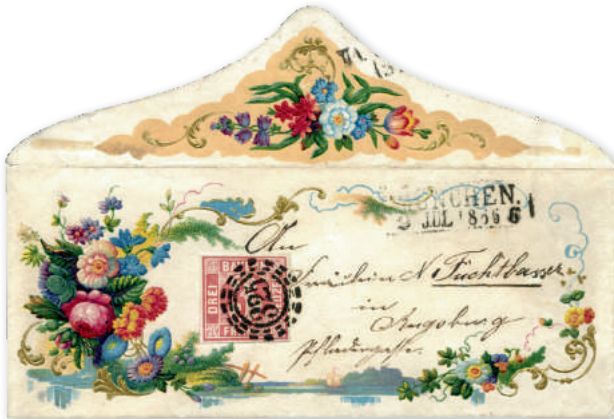 MÜNCHEN.
JUL 1866
An
Fräulein N. Füchtbauer
in
Augsburg
BAY
DREI
325
FR